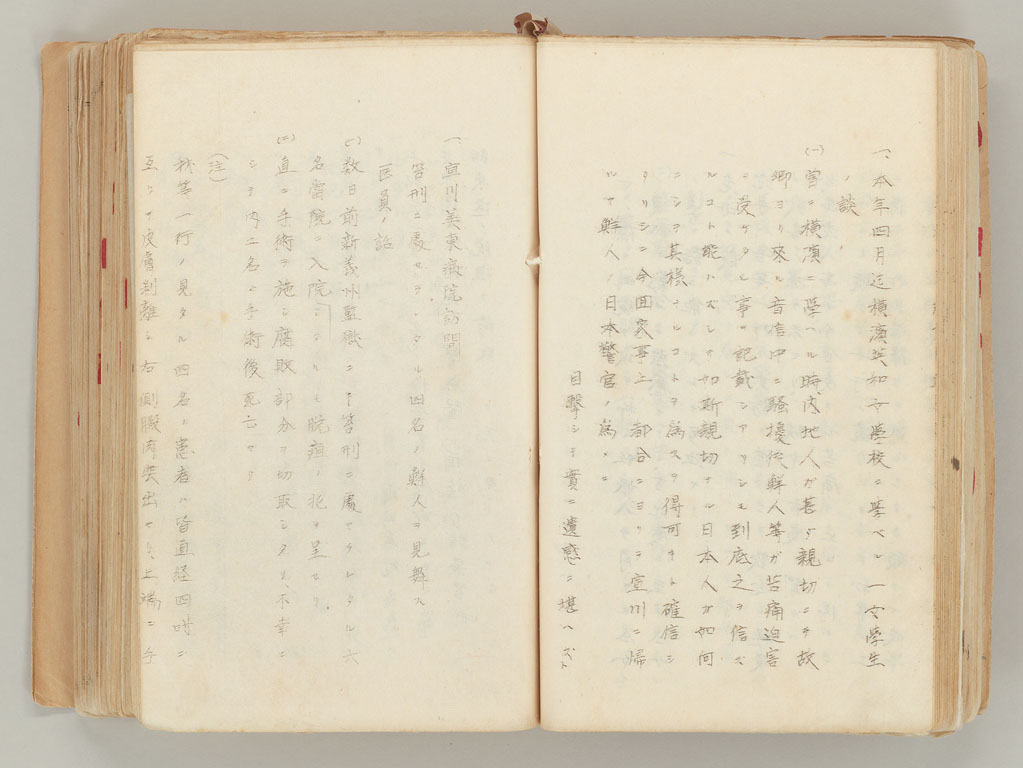 一、本年四月迄横濱共和女學校ニ學ベル一女學生
ノ談、
(一)曽テ横濱ニ學ベル時、内地人ガ甚ダ親切ニシテ故
郷ヨリ來ル音信中ニ騒擾後鮮人等ガ苦痛迫害
ヲ受ケタル事ヲ記載シアリシモ到底之ヲ信ズ
ルコト能ハズシテ
親切ナル日本人ガ如何
ニシテ其様ナルコトヲ為スヲ得可キト確信シ
タリシニ今回家事上ノ都合ニヨリテ宣川ニ帰
ルヤ鮮人ノ日本警官ノ為メニ
目撃シテ實ニ遺憾ニ堪ヘズト
一、宣川美東病院訪問
笞刑ニ處セラレタル四名ノ鮮人ヲ見舞フ
医員ノ話
(一)数日前新義州監獄ニテ笞刑ニ處セラレタル六
名當院ニ入院シタルモ脱疽ノ
ヲ呈セリ、
(二)直ニ手術ヲ施シ腐敗部分ヲ切取シタリ、不幸ニ
シテ内二名ハ手術後死亡セリ
(注)
我等一行ノ見タル四名ノ患者ハ皆直経四吋ニ
互リテ皮膚剥離シ右側臀肉突出セリ、上端ニ